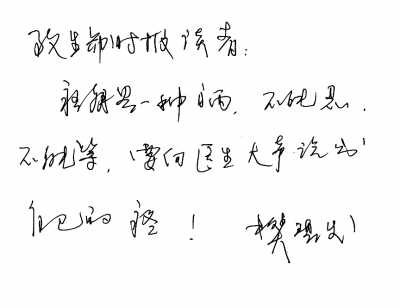 致生命时报读者：
疼痛是一种病，不能忍，
不能等，要向医生大声说出
自己的疼！ 樊碧发